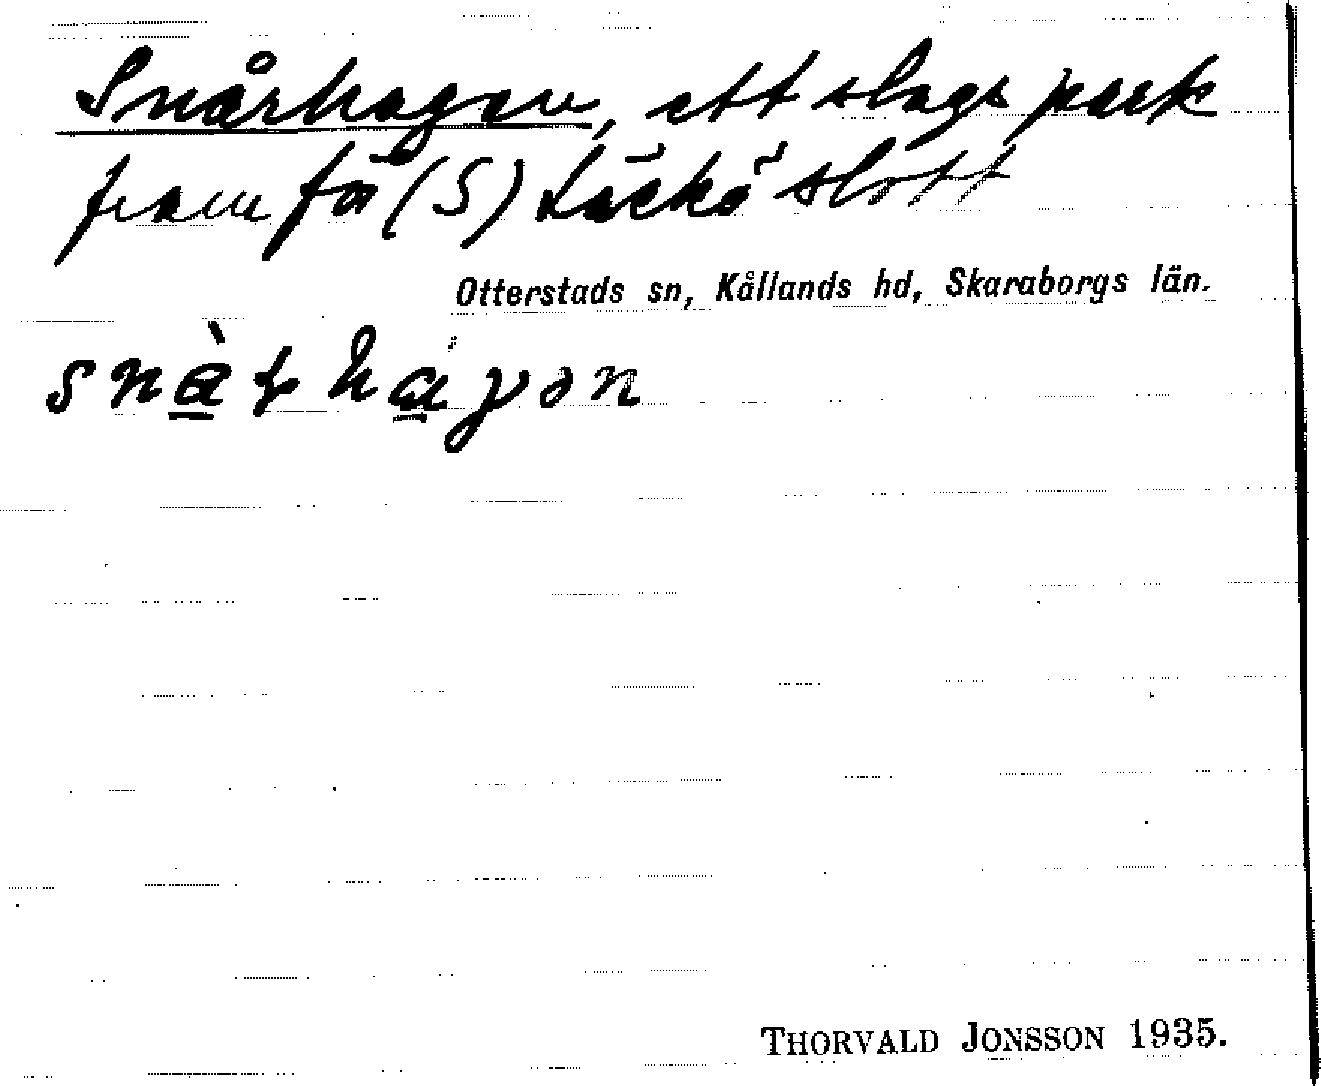 Snårhagen, ett slags park
framför (S) Läckö slott
Otterstads sn, Kållands hd, Skaraborgs län.
THORVALD JONSSON 1935.